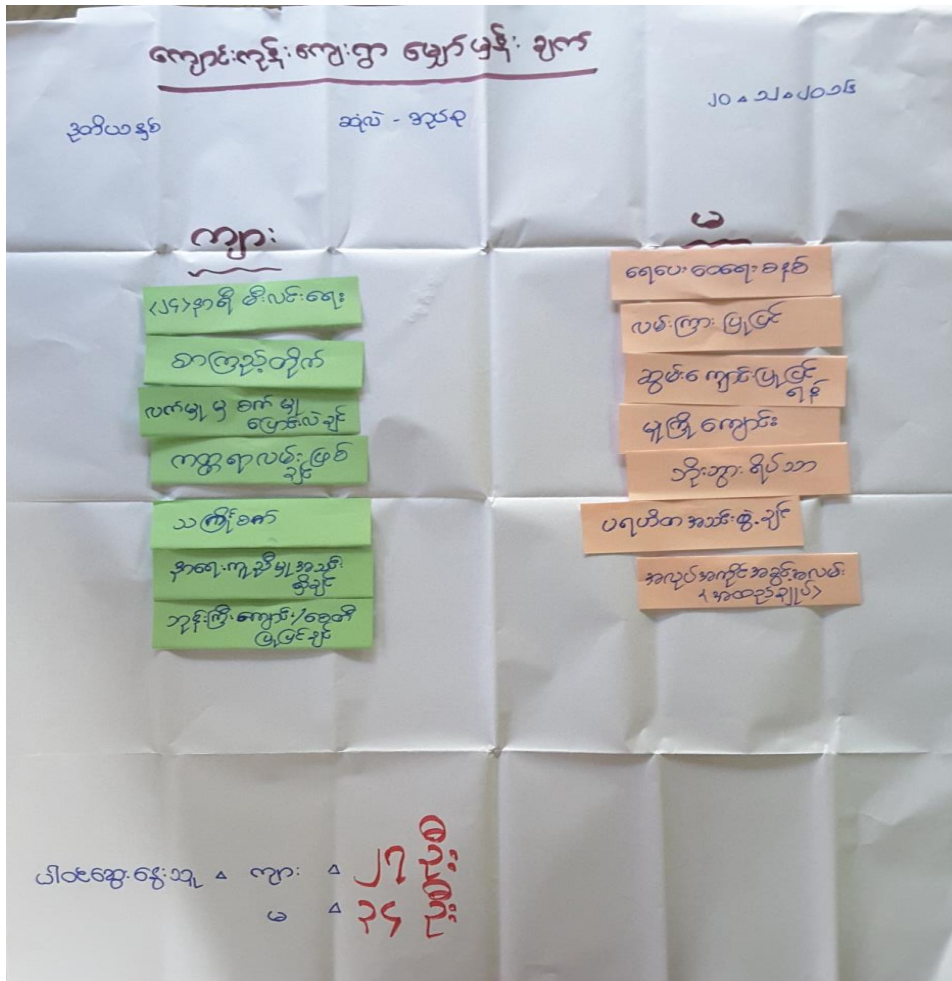 ကျောင်းကုန်းကျေးရွာ မျှော်မှန်းချက်
ဒုတိယနှစ်
ဆုံလဲ - အုပ်စု
၂၀
ကျား
<၂၄>နာရီ မီးလင်းရေး
စာကြည့်တိုက်
လက်မှု မှ စက်မှု
ပြောင်းလဲချင်း
ကတ္တရာလမ်းဖြစ်
ချင်း
သင်္ကြိုစက်
နာရေးကူညီမှုအသင်း
ရှိချင်း
ဘုန်းကြီးကျောင်း/စေတီ
ပြုပြင်ချင်း
မ
ရေပေးဝေရေးစနစ်
လမ်းကြားပြုပြင်
ဆွမ်းကျောင်းပြုပြင်
ရန်
မူကြိုကျောင်း
ဘိုးဘွားရိပ်သာ
ပရဟိတအသင်းဖွဲ့ချင်း
အလုပ်အကိုင်အခွင့်အလမ်း
<အထည်ချုပ်>
ပါဝင်ဆွေးနွေးသူ ▵ ကျား ▵ ၂၇ ဦး
မ ▵ ၃၄ ဦး